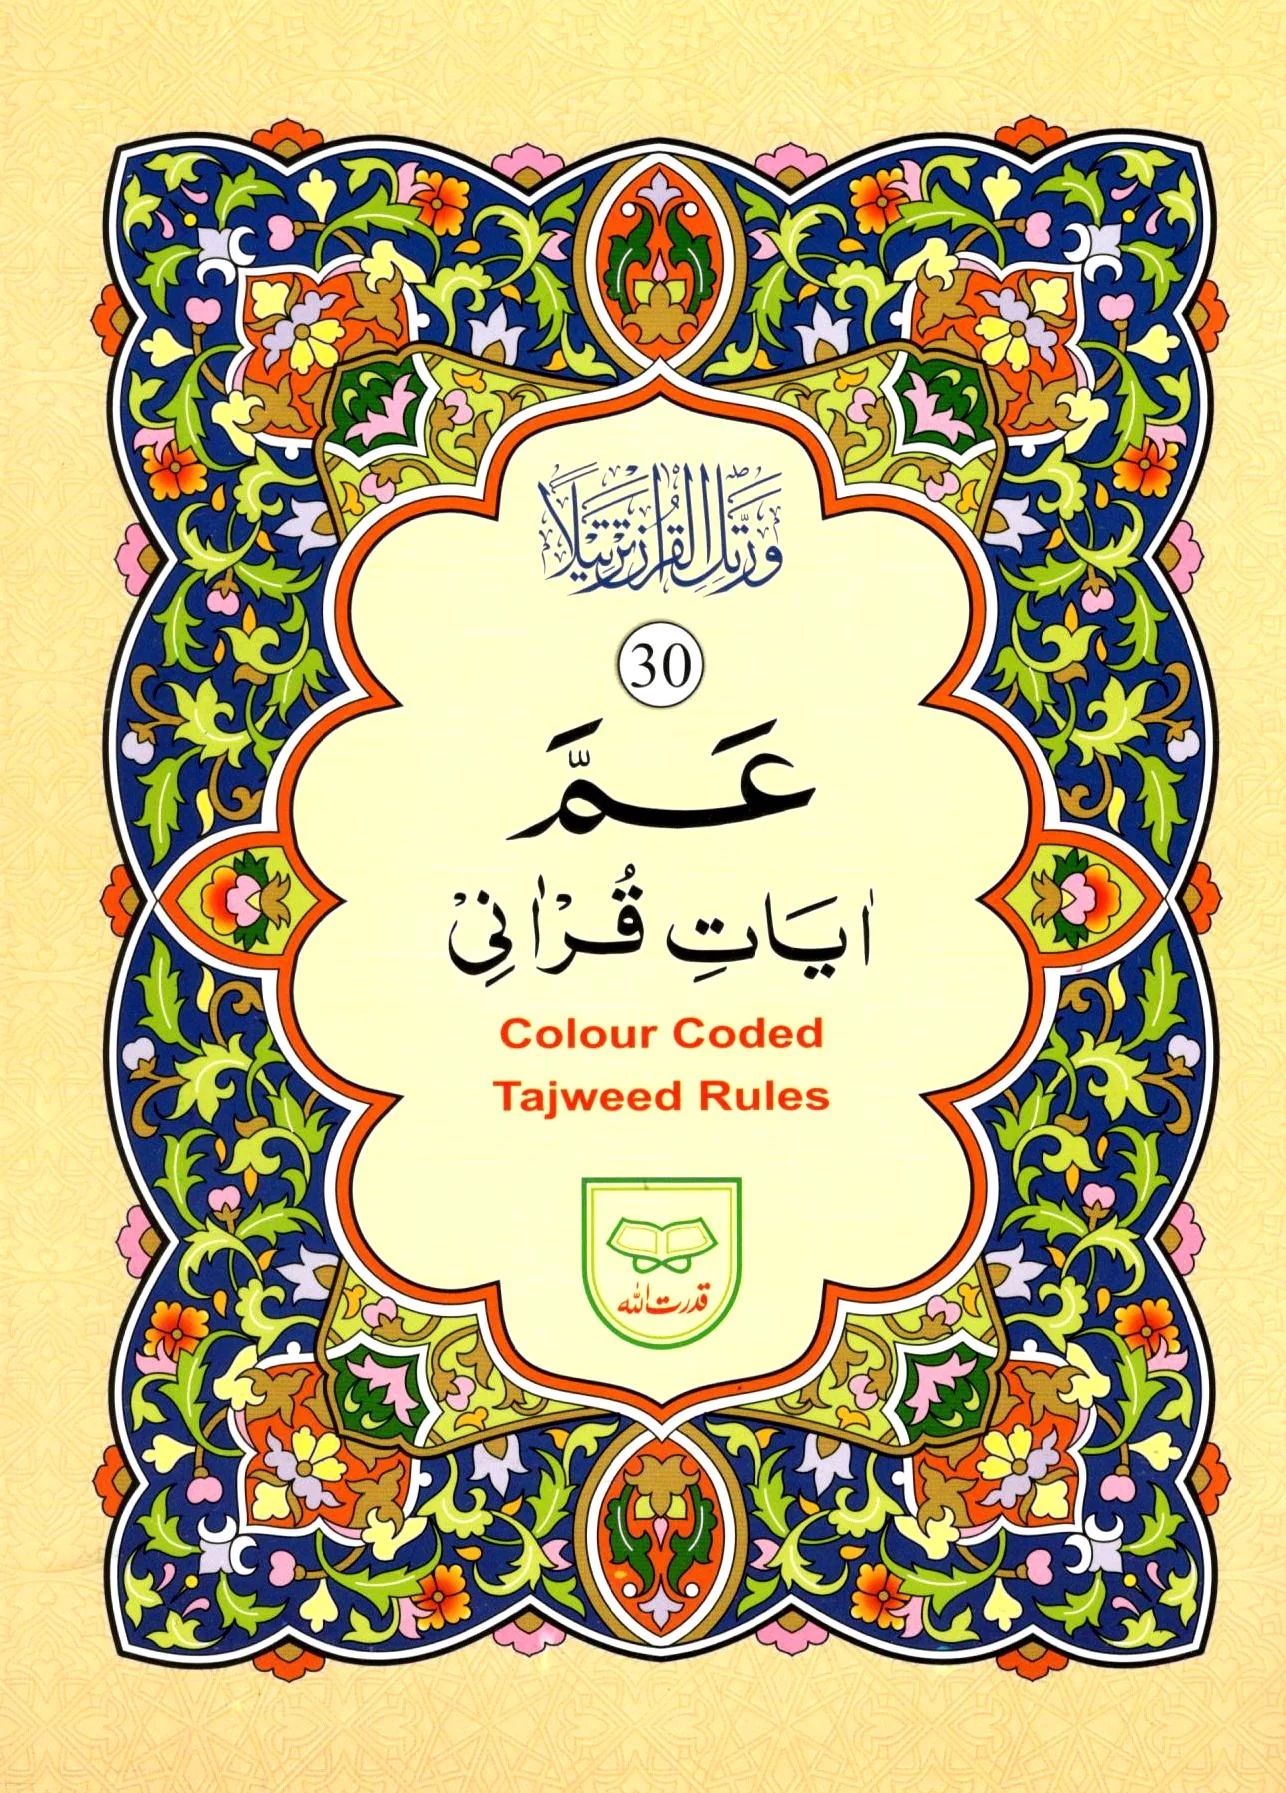 وَرَتِّلِ الْقُرْاٰنَ تَرْتِيْلًا
30
عَمَّ
اٰيَاتِ قُرْاٰنِیْ
Colour Coded
Tajweed Rules
قدرت اللہ